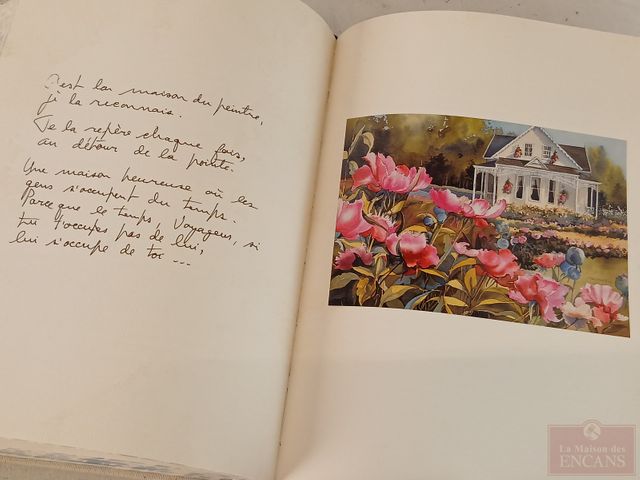 C'est la maison du peintre,
je la reconnais.
Je la repère chaque fois,
au détour de la pointe.
Une maison heureuse où les
gens s'occupent du temps.
Parce que le temps, Voyageur, si
tu t'occupes pas de lui,
lui s'occupe de toi ...
La Maison des
ENCANS